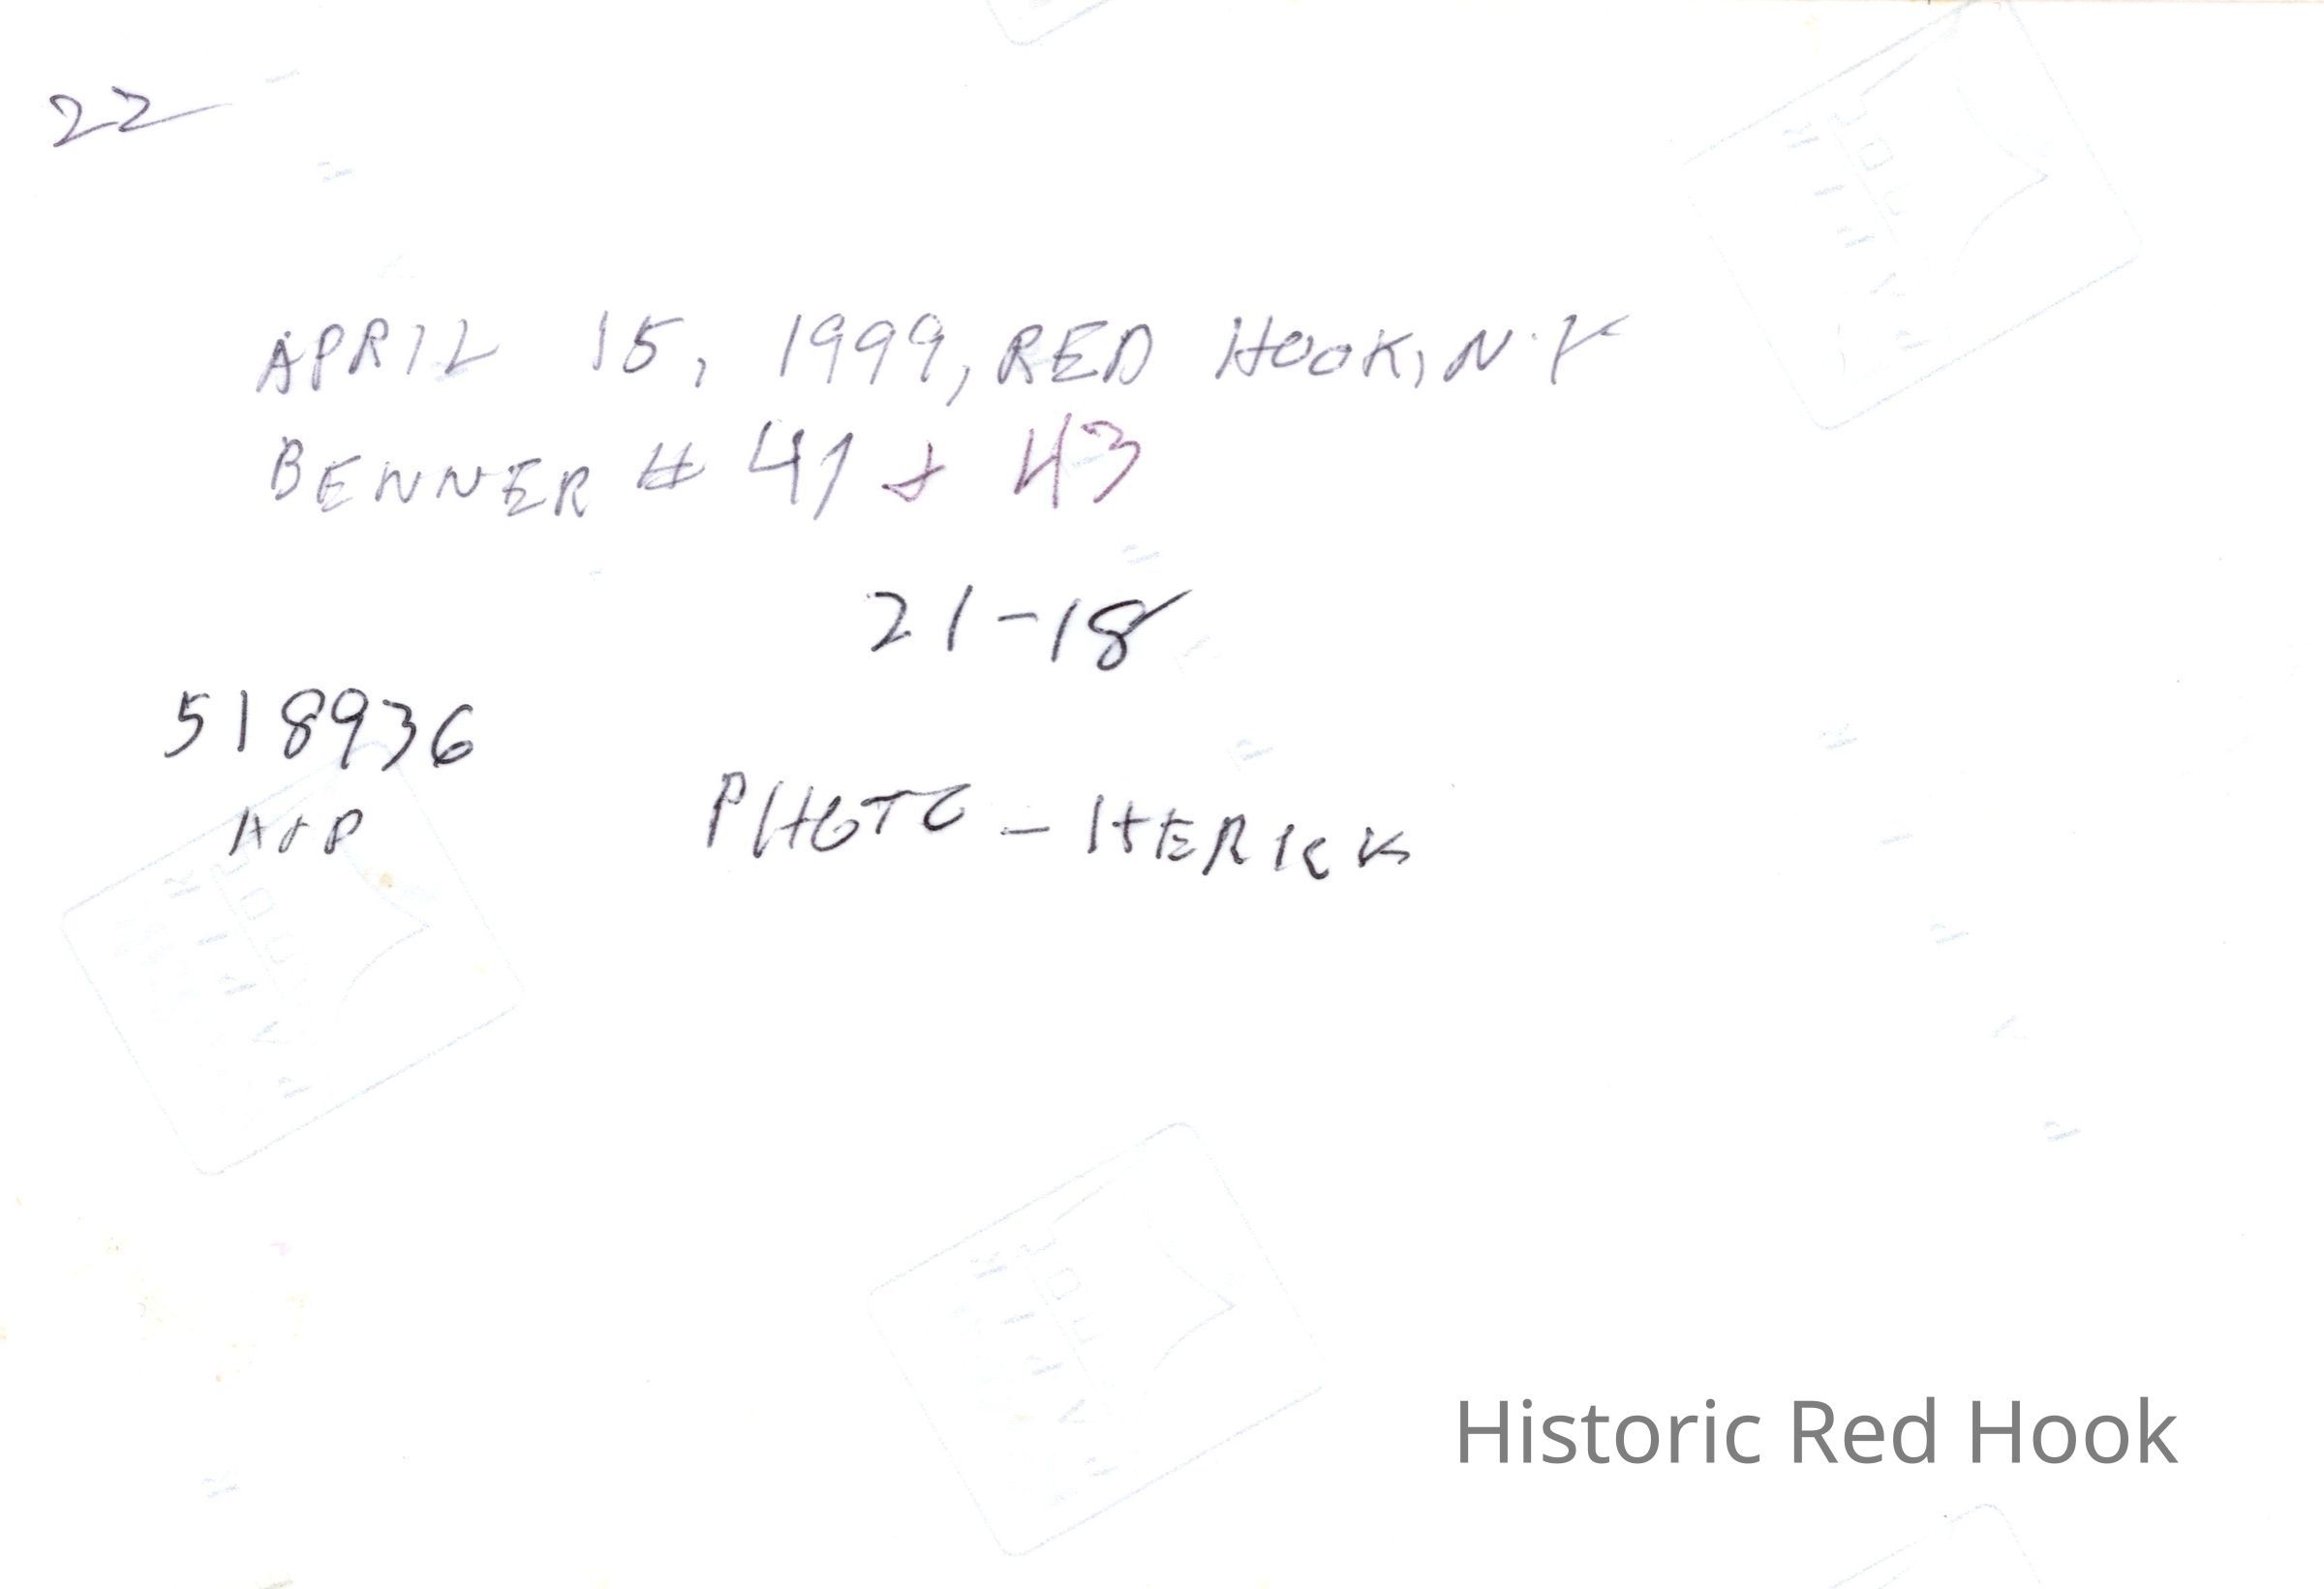 22
APRIL 15, 1999, RED HOOK, N.Y
BENNER # 41 & 43
21-18
518936
PHOTO - HERICK
Historic Red Hook